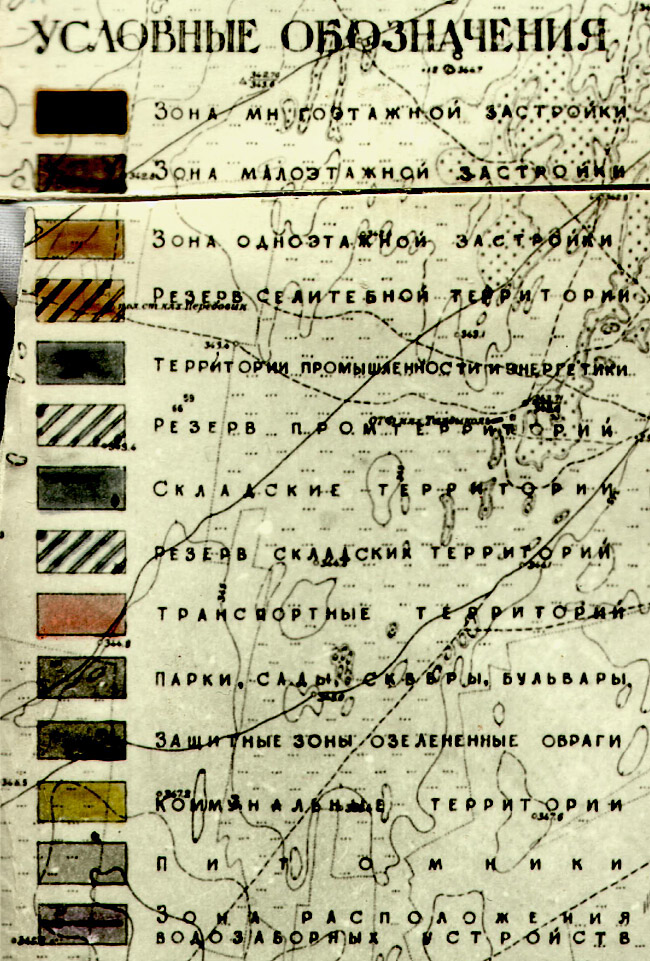 УСЛОВНЫЕ ОБОЗНАЧЕНИЯ
344.7
ЗОНА МНОГОЭТАЖНОЙ ЗАСТРОЙКИ
ЗОНА МАЛОЭТАЖНОЙ ЗАСТРОЙКИ
ЗОНА ОДНОЭТАЖНОЙ ЗАСТРОЙКИ
РЕЗЕРВ СЕЛИТЕБНОЙ ТЕРРИТОРИИ
343.1
ТЕРРИТОРИИ ПРОМЫШЛЕННОСТИ И ЭНЕРГЕТИКИ
РЕЗЕРВ ПРОМТЕРРИТОРИЙ
СКЛАДСКИЕ ТЕРРИТОРИИ
РЕЗЕРВ СКЛАДСКИХ ТЕРРИТОРИЙ
ТРАНСПОРТНЫЕ ТЕРРИТОРИИ
344.8
ПАРКИ, САДЫ, СКВЕРЫ, БУЛЬВАРЫ,
ЗАЩИТНЫЕ ЗОНЫ ОЗЕЛЕНЕННЫЕ ОВРАГИ
346.5
347.2
КОММУНАЛЬНЫЕ ТЕРРИТОРИИ
347.6
ПИТОМНИКИ
ЗОНА РАСПОЛОЖЕНИЯ
ВОДОЗАБОРНЫХ УСТРОЙСТВ